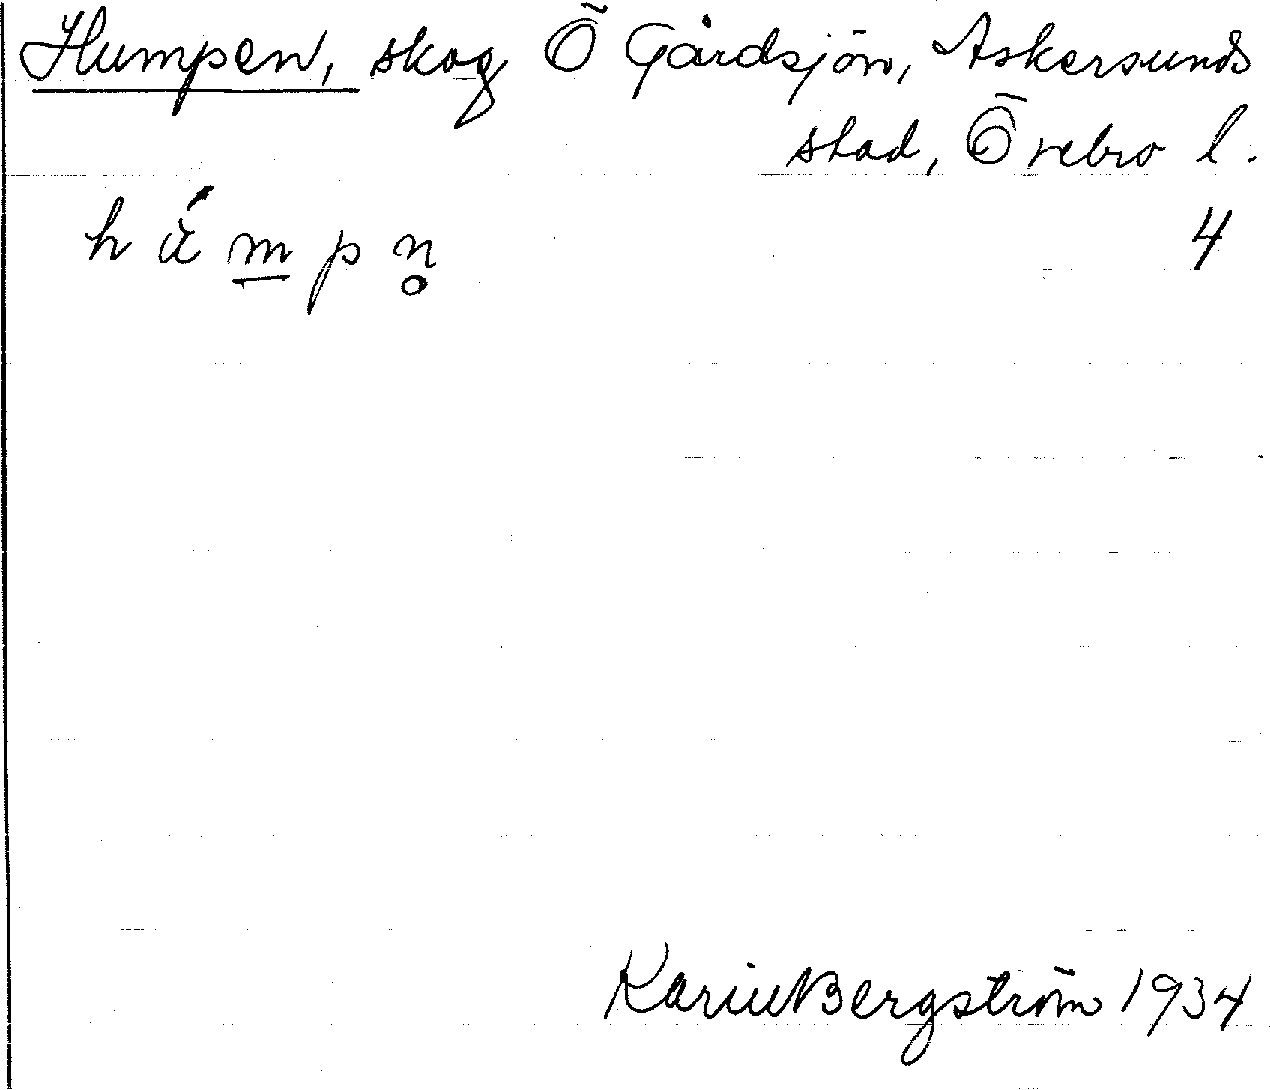 Humpen, skog Ö Gårdsjön, Askersunds
stad, Örebro l.
4
Karin Bergström 1934